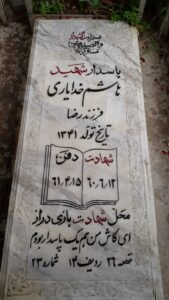 پاسدار شهید
هاشم خدایاری
فرزند رضا
تاریخ تولد ۱۳۴۱
شهادت دفن
۶۰،۶،۱۲ ۶۱،۴،۱۵
محل شهادت بازی دراز
ای کاش من هم یک پاسدار بودم
قطعه ۲۶ ردیف ۱۴ شماره ۲۳